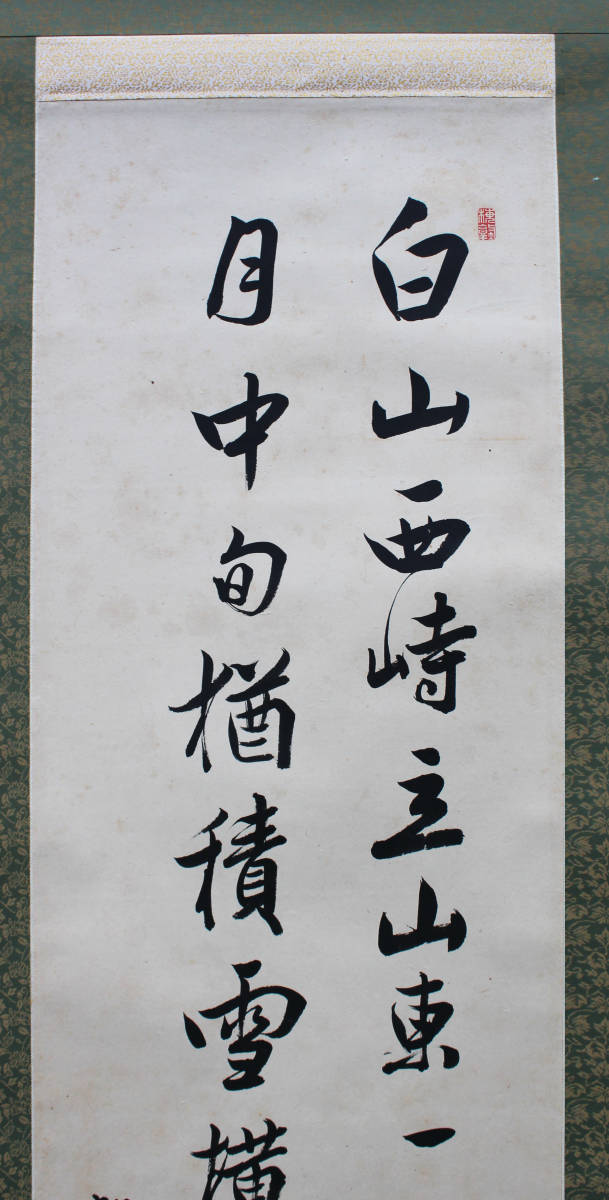 白山西峙立山東一
月中旬猶積雪横